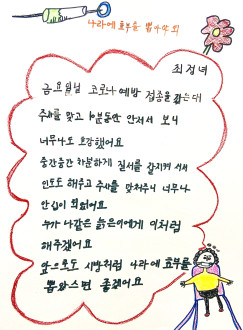 나라에 효부을 뽑아야 되
최정녀
금요일날 코로나 예방 접종을 갔는대
주사를 맞고 10분동안 안저서 보니
너무나도 도감했어요
중간중간 차분하게 질서를 갈치켜 서서
인도도 해주고 주사를 맞처주니 너무나
안심이 되었어요
누가 나같은 늙은이에게 이처럼
해주겠어요
앞으로도 시방처럼 나라에 효부을
뽑았스면 좋겠어요